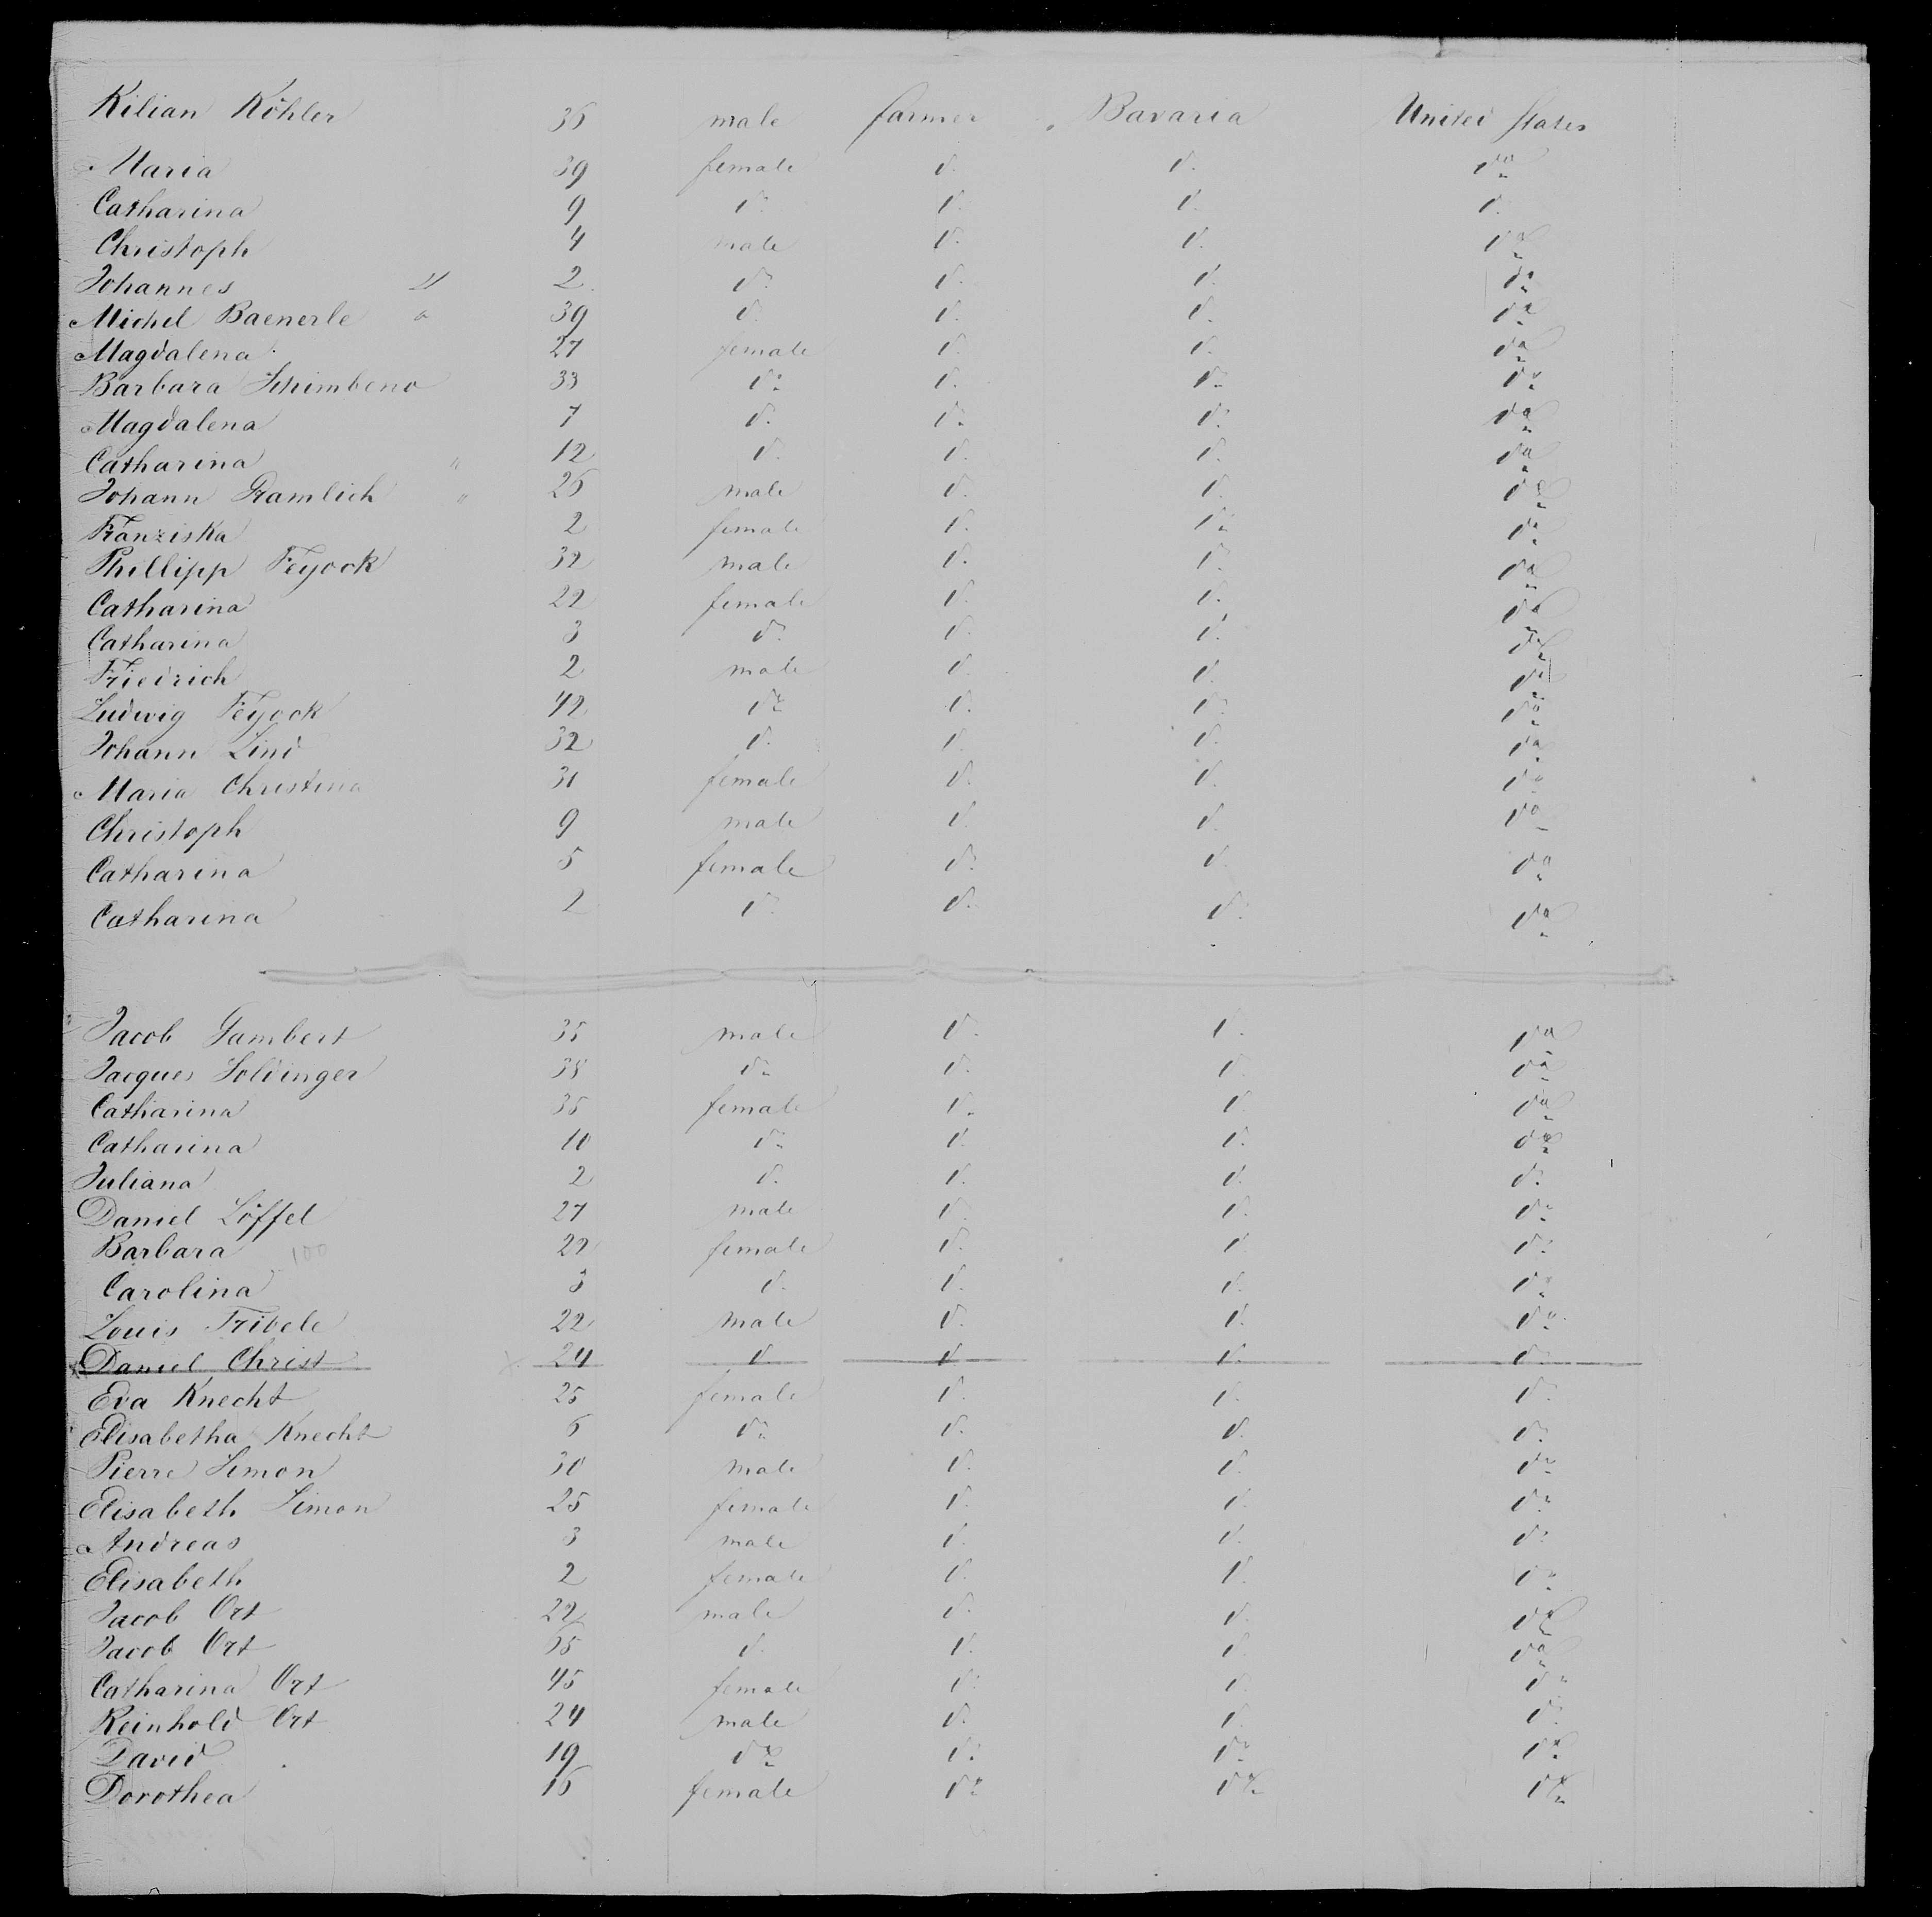 Kilian Köhler 36 male farmer Bavaria United States
Maria 39 female do do do
Catharina 9 do do do do
Christoph 4 male do do do
Johannes 2 do do do do
Michel Baenerle 39 do do do do
Magdalena 27 female do do do
Barbara 33 do do do do
Magdalena 7 do do do do
Catharina 12 do do do do
Johann Gramlich 26 male do do do
Franziska 2 female do do do
Phillipp Feyock 32 male do do do
Catharina 22 female do do do
Catharina 3 do do do do
Friedrich 2 male do do do
Ludwig Feyock 42 do do do do
Johann Lind 32 do do do do
Maria Christina 31 female do do do
Christoph 9 male do do do
Catharina 5 female do do do
Catharina 2 do do do do
Jacob Gambert 35 male do do do
Jacques Soldinger 38 do do do do
Catharina 35 female do do do
Catharina 10 do do do do
Juliana 2 do do do do
Daniel Löffel 27 male do do do
Barbara 100 22 female do do do
Carolina 3 do do do do
Louis Tribele 22 male do do do
Daniel Christ 24 do do do do
Eva Knecht 25 female do do do
Elisabetha Knecht 6 do do do do
Pierre Simon 30 male do do do
Elisabeth Simon 25 female do do do
Andreas 3 male do do do
Elisabeth 2 female do do do
Jacob Ort 22 male do do do
Jacob Ort 55 do do do do
Catharina Ort 45 female do do do
Reinhold Ort 24 male do do do
David 19 do do do do
Dorothea 16 female do do do